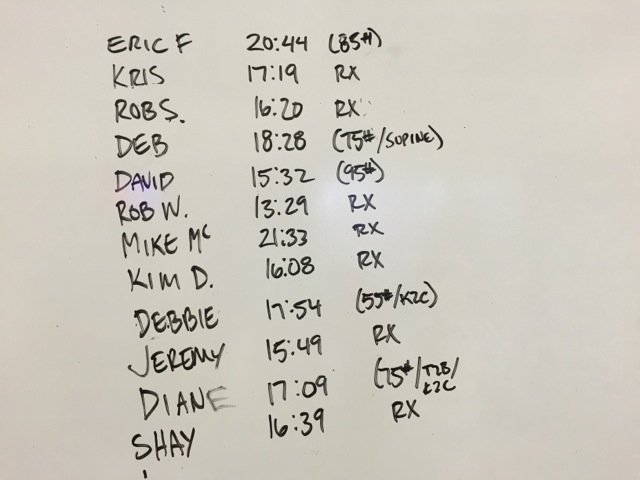 ERIC F 20:44 (85#)
KRIS 17:19 RX
ROB S. 16:20 RX
DEB 18:28 (75#/SUPINE)
DAVID 15:32 (95#)
ROB W. 13:29 RX
MIKE Mc 21:33 RX
KIM D. 16:08 RX
DEBBIE 17:54 (55#/K2C)
JEREMY 15:49 RX
DIANE 17:09 (75#/T2B/
K2C
SHAY 16:39 RX